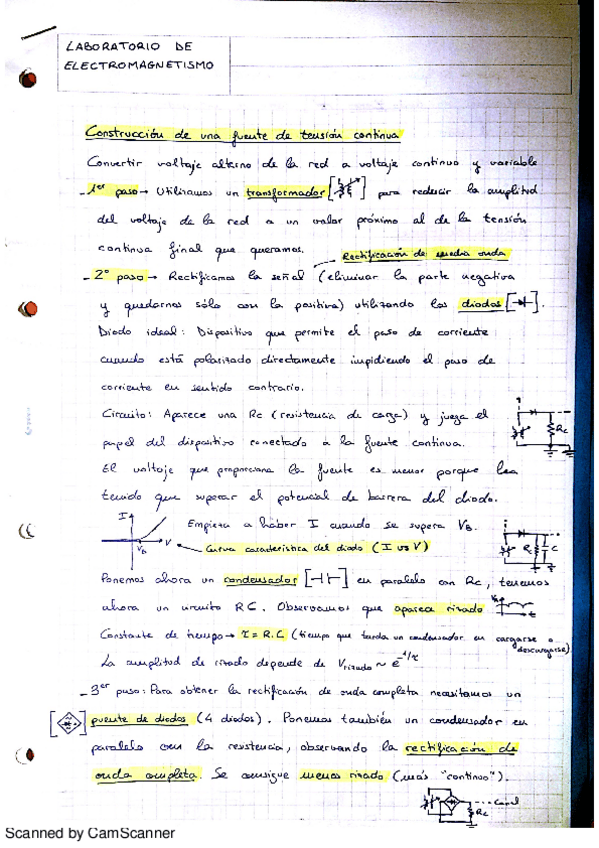 LABORATORIO DE
ELECTROMAGNETISMO
Construcción de una fuente de tensión continua
Convertir voltaje alterno de la red a voltaje continuo y variable
- 1er paso → Utilizamos un transformador [ ] para reducir la amplitud
del voltaje de la red a un valor próximo al de la tensión
continua final que queramos.
Rectificación de media onda
- 2º paso → Rectificamos la señal (eliminar la parte negativa
y quedarnos sólo con la positiva) utilizando los diodos [ ].
Diodo ideal: Dispositivo que permite el paso de corriente
cuando está polarizado directamente impidiendo el paso de
corriente en sentido contrario.
Circuito: Aparece una Rc (resistencia de carga) y juega el
papel del dispositivo conectado a la fuente continua.
Rc
El voltaje que proporciona la fuente es menor porque ha
tenido que superar el potencial de barrera del diodo.
I
Empieza a haber I cuando se supera VB.
VB
V
Curva característica del diodo (I vs V)
Rc
C
Ponemos ahora un condensador [ ] en paralelo con Rc, tenemos
ahora un circuito RC. Observamos que aparece rizado
t
Constante de tiempo → τ = R.C (tiempo que tarda un condensador en cargarse o
descargarse)
La amplitud de rizado depende de Vrizado ~ e^-t/τ
- 3er paso: Para obtener la rectificación de onda completa necesitamos un
[ ] puente de diodos (4 diodos). Ponemos también un condensador en
paralelo con la resistencia, observando la rectificación de
onda completa. Se consigue menos rizado (más "continuo").
Rc
Scanned by CamScanner